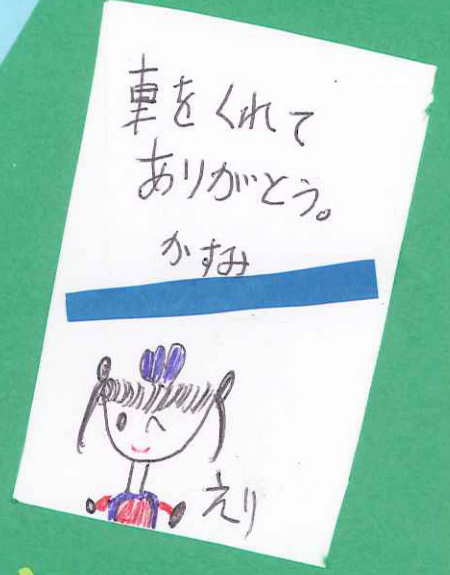 車をくれて
ありがとう。
かすみ
えり